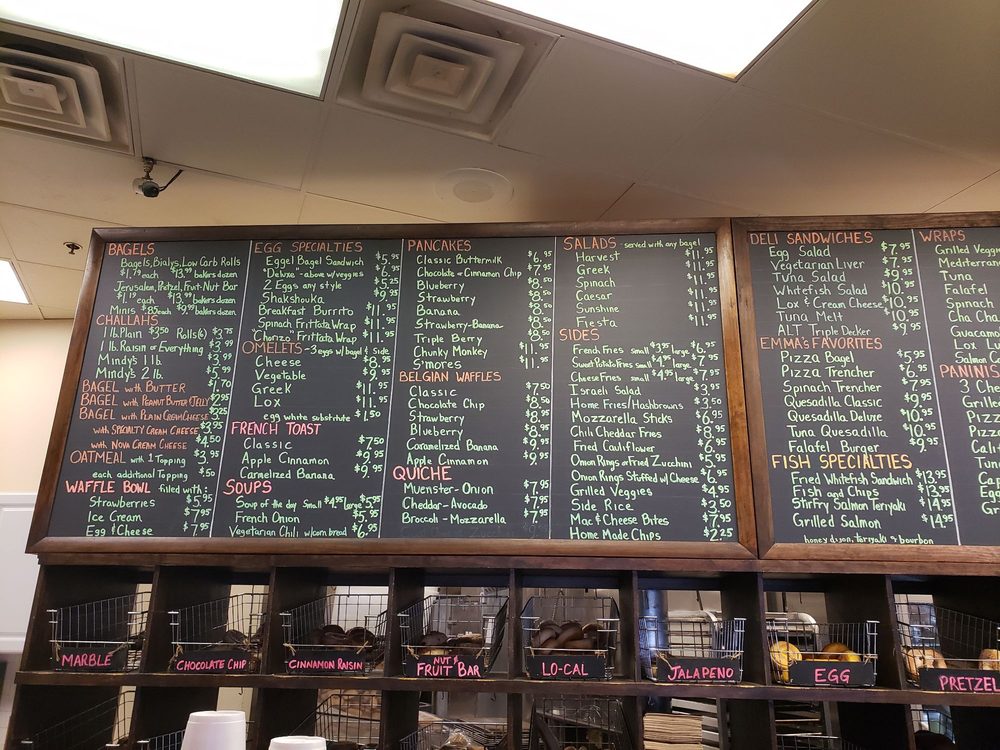 BAGELS
Bagels, Bialys, Low Carb Rolls
$1.79 each $13.99 bakers dozen
Jerusalem, Pretzel, Fruit-Nut Bar
$1.19 each $13.99 bakers dozen
Minis $.85 each $9.99 bakers dozen
CHALLAHS
1 lb. Plain $3.50 Rolls(6) $3.75
1 lb. Raisin or Everything $3.99
Mindy's 1 lb. $3.99
Mindy's 2 lb. $5.99
BAGEL with BUTTER $1.70
BAGEL with PEANUT BUTTER/JELLY $2.95
BAGEL with PLAIN CREAM CHEESE $3.25
with SPECIALTY CREAM CHEESE $3.95
with NOVA CREAM CHEESE $4.50
OATMEAL with 1 Topping $3.95
each additional Topping $.50
WAFFLE BOWL filled with:
Strawberries $5.95
Ice Cream $7.95
Egg & Cheese $7.95
EGG SPECIALTIES
Eggel Bagel Sandwich $5.95
"Deluxe"-above w/veggies $6.95
2 Eggs any style $5.25
Shakshouka $9.95
Breakfast Burrito $11.95
Spinach Frittata Wrap $11.95
Chorizo Frittata Wrap $11.95
OMELETS - 3 eggs w/bagel & side
Cheese $8.95
Vegetable $9.95
Greek $11.95
Lox $11.95
egg white substitute $1.50
FRENCH TOAST
Classic $7.50
Apple Cinnamon $9.95
Carmelized Banana $9.95
SOUPS
Soup of the day Small $4.95 Large $5.95
French Onion $5.95
Vegetarian Chili w/corn bread $6.95
PANCAKES
Classic Buttermilk $6.95
Chocolate or Cinnamon Chip $7.95
Blueberry $8.50
Strawberry $8.50
Banana $8.50
Strawberry-Banana $8.50
Triple Berry $8.50
Chunky Monkey $11.95
S'mores $11.95
BELGIAN WAFFLES
Classic $7.50
Chocolate Chip $8.50
Strawberry $8.95
Blueberry $8.95
Caramelized Banana $9.95
Apple Cinnamon $9.95
QUICHE
Muenster-Onion $7.95
Cheddar-Avocado $7.95
Broccoli-Mozzarella $7.95
SALADS - served with any bagel
Harvest $11.95
Greek $11.95
Spinach $11.95
Caesar $11.95
Sunshine $11.95
Fiesta $11.95
SIDES
French Fries small $3.95 large $6.95
Sweet Potato Fries small $4.95 large $7.95
Cheese Fries small $4.95 large $7.95
Israeli Salad $3.95
Home Fries/Hashbrowns $3.50
Mozzarella Sticks $6.95
Chili Cheddar Fries $8.95
Fried Cauliflower $6.95
Onion Rings or Fried Zucchini $5.95
Onion Rings Stuffed w/Cheese $6.95
Grilled Veggies $4.95
Side Rice $3.50
Mac & Cheese Bites $7.95
Home Made Chips $2.25
DELI SANDWICHES
Egg Salad $7.95
Vegetarian Liver $7.95
Tuna Salad $9.95
Whitefish Salad $10.95
Lox & Cream Cheese $10.95
Tuna Melt $10.95
ALT Triple Decker $9.95
EMMA'S FAVORITES
Pizza Bagel $5.95
Pizza Trencher $6.95
Spinach Trencher $7.95
Quesadilla Classic $9.95
Quesadilla Deluxe $10.95
Tuna Quesadilla $10.95
Falafel Burger $9.95
FISH SPECIALTIES
Fried Whitefish Sandwich $13.95
Fish and Chips $13.95
Stir Fry Salmon Teriyaki $14.95
Grilled Salmon $14.95
honey dijon, teriyaki or bourbon
WRAPS
Grilled Vegg
Mediterran
Tuna
Falafel
Spinach
Cha Cha
Guacam
Lox L
Salmon C
PANINIS
3 Che
Grille
Pizz
Pizz
Cali
Tun
Cap
Eg
MARBLE
CHOCOLATE CHIP
CINNAMON RAISIN
NUT &
FRUIT BAR
LO-CAL
JALAPENO
EGG
PRETZEL